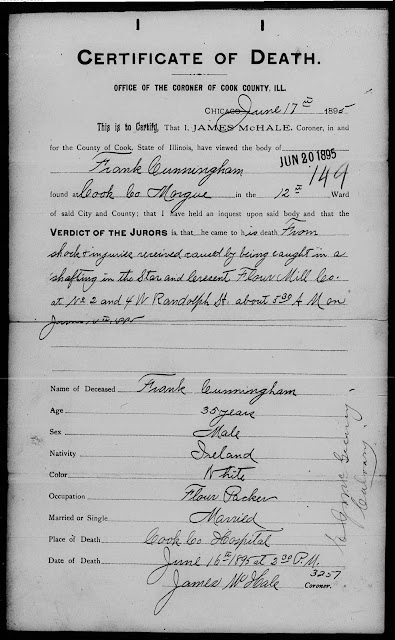 CERTIFICATE OF DEATH.
OFFICE OF THE CORONER OF COOK COUNTY, ILL.
CHICAGO June 17th 1895
This is to Certify, That I, JAMES McHALE, Coroner, in and
for the County of Cook, State of Illinois, have viewed the body of
JUN 20 1895
Frank Cunningham 149
found at Cook Co Morgue in the 12th Ward
of said City and County; that I have held an inquest upon said body and that the
VERDICT OF THE JURORS is, that he came to his death From
shock & injuries received caused by being caught in a
shafting in the Star and Crescent Flour Mill Co.
at No 2 and 4 W Randolph St. about 5 30 A M on
June 1895
Name of Deceased Frank Cunningham
Age 35 years
Sex Male
Nativity Ireland
Color White
Occupation Flour Packer
Married or Single Married
Place of Death Cook Co Hospital
Date of Death June 16th 1895 at 2 30 P.M.
3257
James McHale Coroner.
Calvary